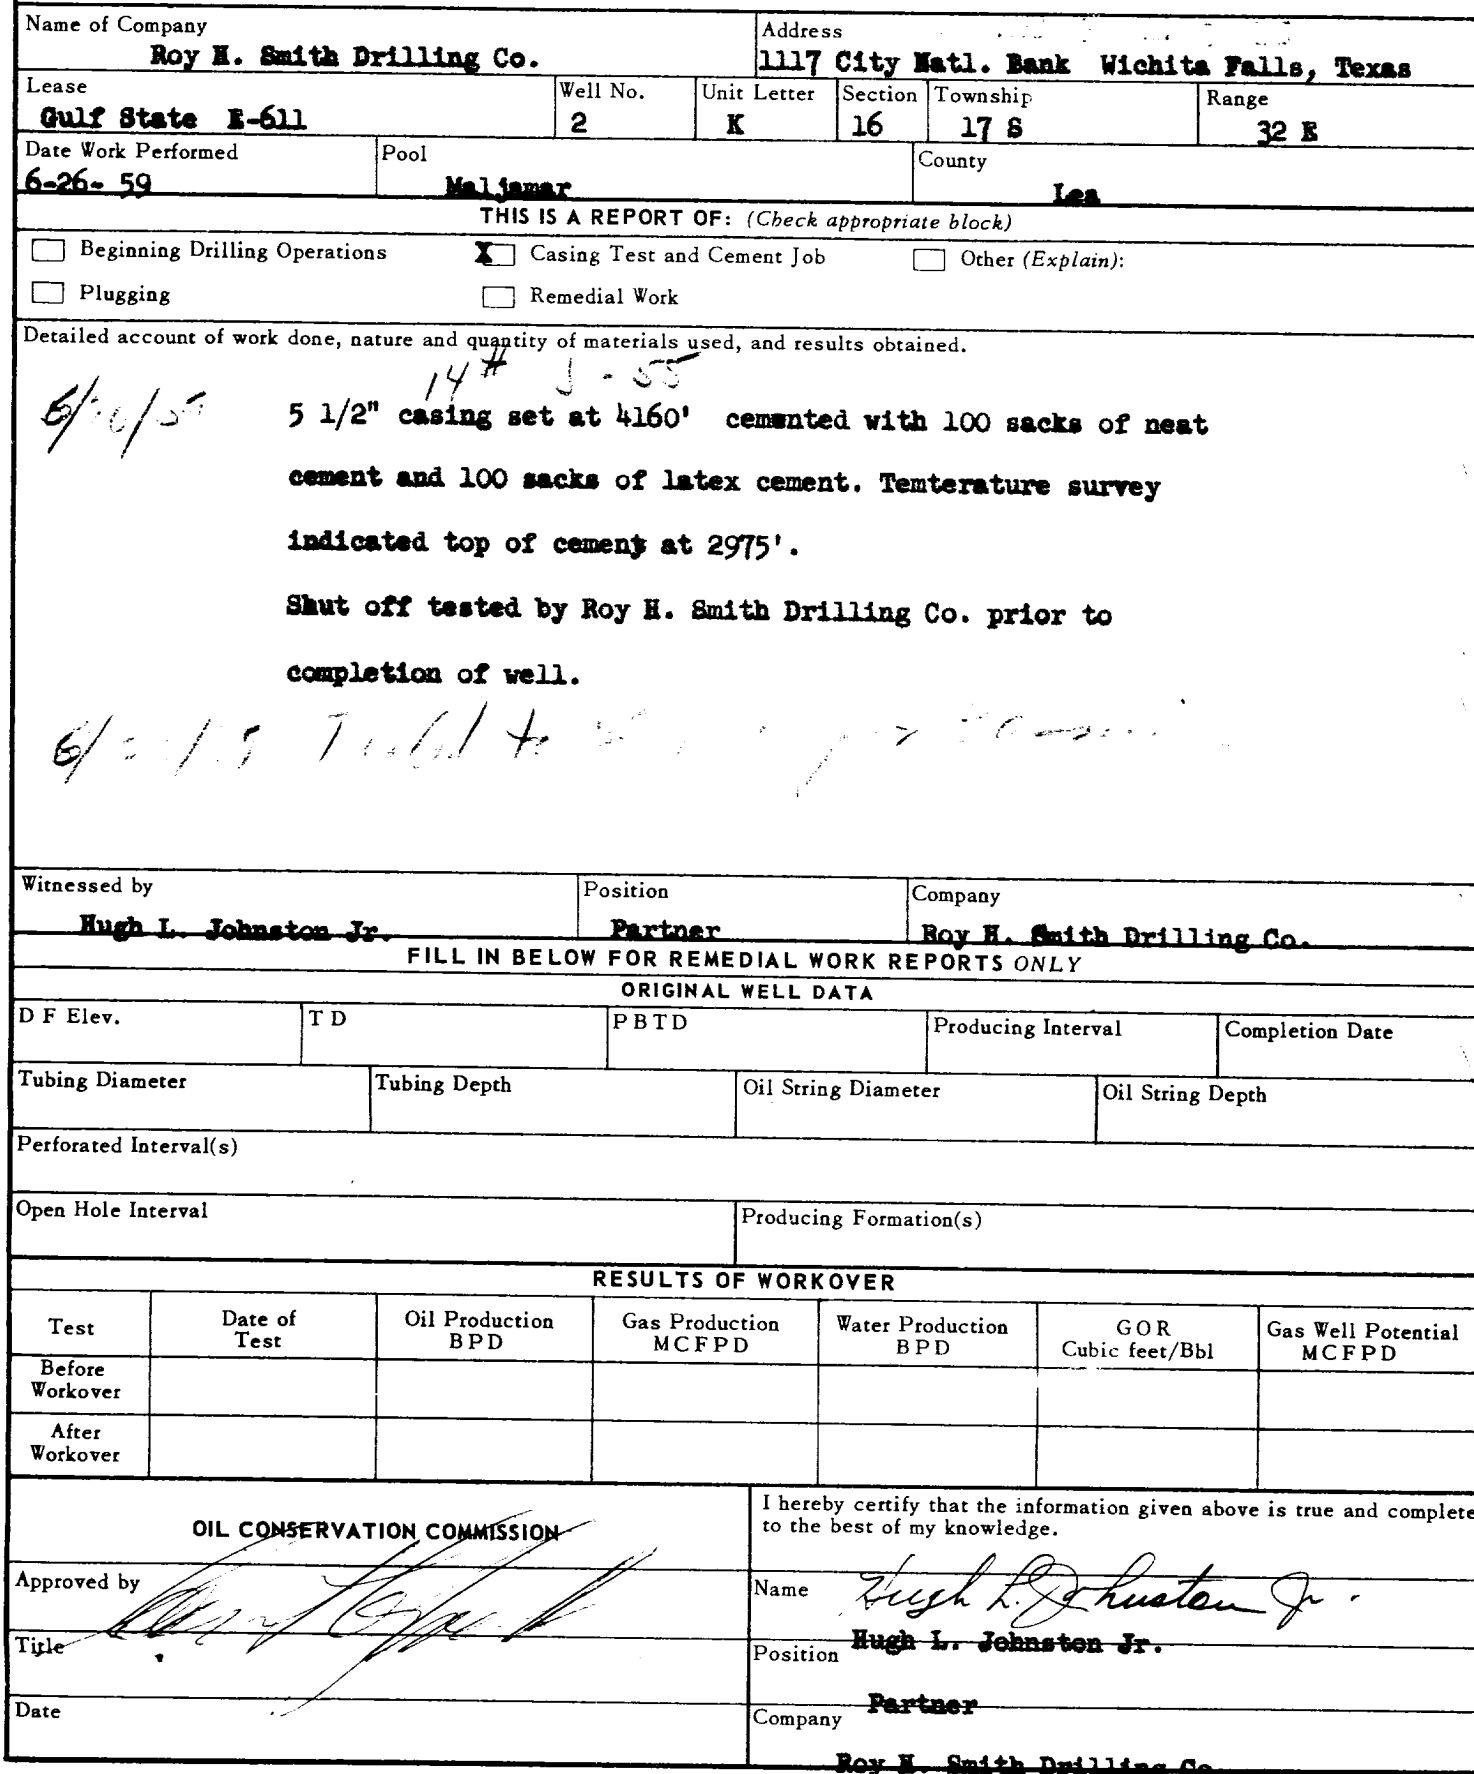 Name of Company
Address
Roy H. Smith Drilling Co.
1117 City Natl. Bank Wichita Falls, Texas
Lease
Well No.
Unit Letter
Section
Township
Range
Gulf State E-611
2
K
16
17 S
32 E
Date Work Performed
Pool
County
6-26- 59
Maljamar
Lea
THIS IS A REPORT OF: (Check appropriate block)
Beginning Drilling Operations
X Casing Test and Cement Job
Other (Explain):
Plugging
Remedial Work
Detailed account of work done, nature and quantity of materials used, and results obtained.
14# J-55
5 1/2" casing set at 4160' cemented with 100 sacks of neat
cement and 100 sacks of latex cement. Temterature survey
indicated top of cement at 2975'.
Shut off tested by Roy H. Smith Drilling Co. prior to
completion of well.
to
Witnessed by
Position
Company
Hugh L. Johnston Jr.
Partner
Roy H. Smith Drilling Co.
FILL IN BELOW FOR REMEDIAL WORK REPORTS ONLY
ORIGINAL WELL DATA
D F Elev.
T D
P B T D
Producing Interval
Completion Date
Tubing Diameter
Tubing Depth
Oil String Diameter
Oil String Depth
Perforated Interval(s)
Open Hole Interval
Producing Formation(s)
RESULTS OF WORKOVER
Test
Date of
Test
Oil Production
BPD
Gas Production
MCFPD
Water Production
BPD
GOR
Cubic feet/Bbl
Gas Well Potential
MCFPD
Before
Workover
After
Workover
OIL CONSERVATION COMMISSION
I hereby certify that the information given above is true and complete
to the best of my knowledge.
Approved by
Name
Hugh L. Johnston Jr.
Title
Position
Hugh L. Johnston Jr.
Partner
Date
Company
Roy H. Smith Drilling Co.